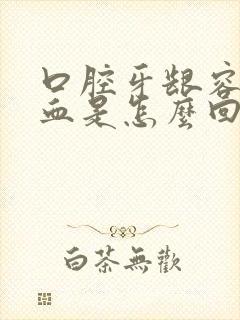 口腔牙龈容
血是怎麼回
白茶無歡